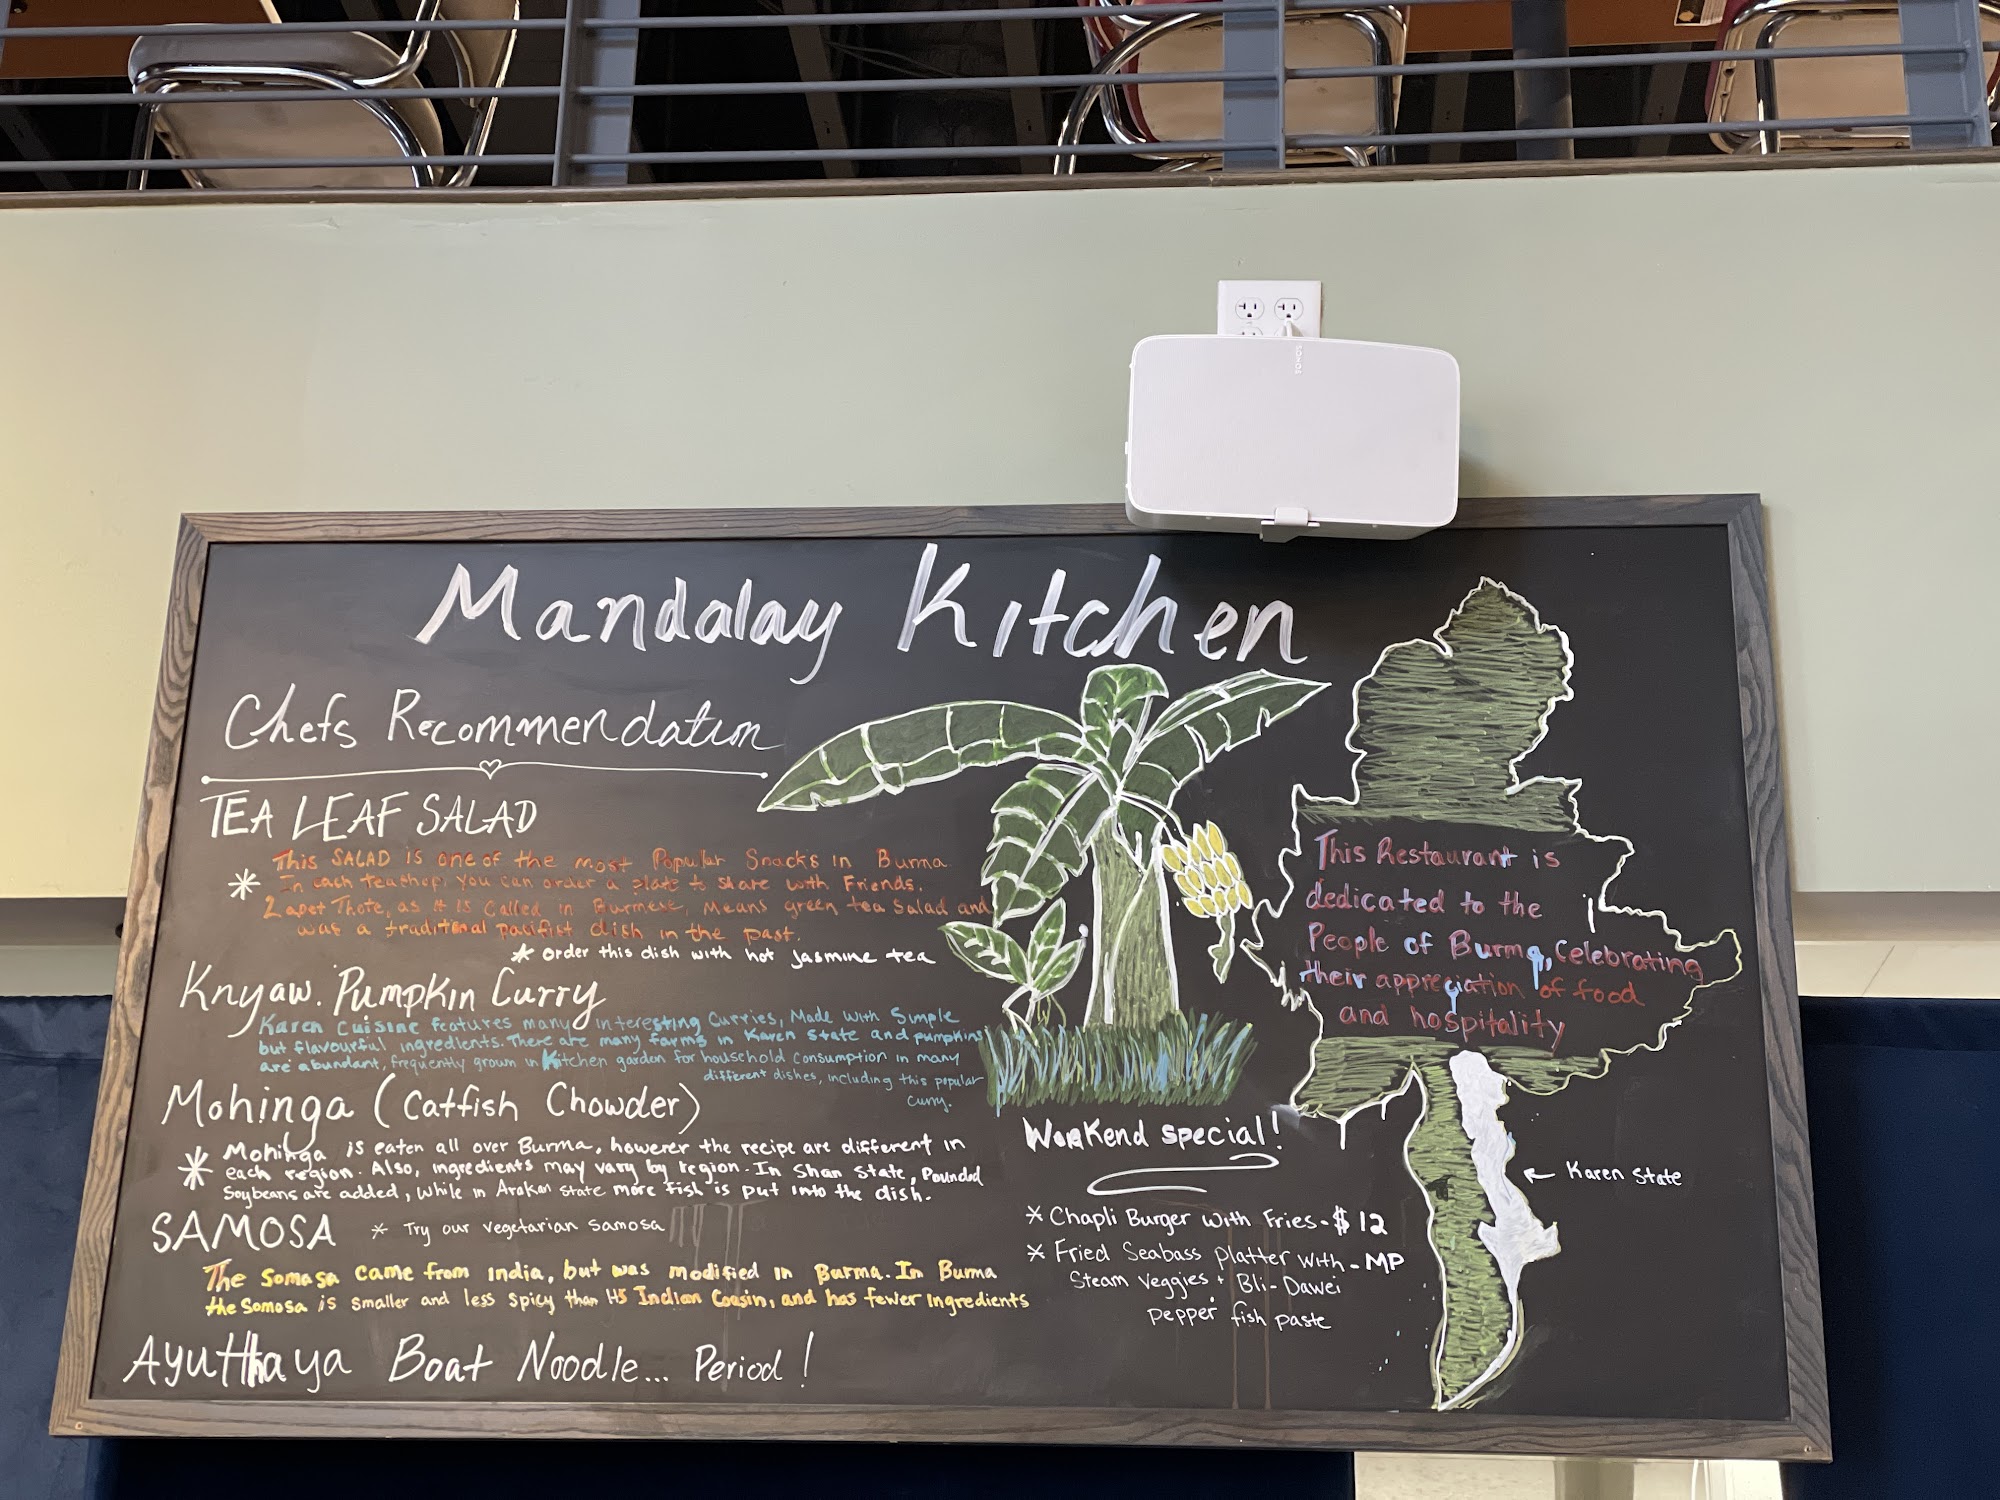 SONOS
Mandalay Kitchen
Chefs Recommendation
TEA LEAF SALAD
* This SALAD is one of the most Popular Snacks in Burma.
In each teashop, you can order a plate to share with Friends.
Lapet Thote, as it is Called in Burmese, Means green tea Salad and
was a traditional pacifist dish in the past.
* order this dish with hot Jasmine tea
Knyaw. Pumpkin Curry
Karen Cuisine features many interesting Curries, Made with Simple
but flavourful ingredients. There are many farms in Karen State and pumpkins
are abundant, frequently grown in Kitchen garden for household Consumption in many
different dishes, including this popular
curry.
Mohinga (Catfish Chowder)
* Mohinga is eaten all over Burma, however the recipe are different in
each region. Also, ingredients may vary by region. In Shan State, Pounded
Soybeans are added, while in Arakan state more fish is put into the dish.
SAMOSA * Try our vegetarian samosa
The Somasa came from India, but was modified in Burma. In Burma
the Somosa is smaller and less spicy than its Indian Cousin, and has fewer ingredients
Ayutthaya Boat Noodle... Period!
This Restaurant is
dedicated to the
People of Burma, Celebrating
their appreciation of food
and hospitality
← Karen State
Weekend special!
* Chapli Burger with Fries - $12
* Fried Seabass platter with - MP
Steam Veggies + Bli-Dawei
pepper fish paste